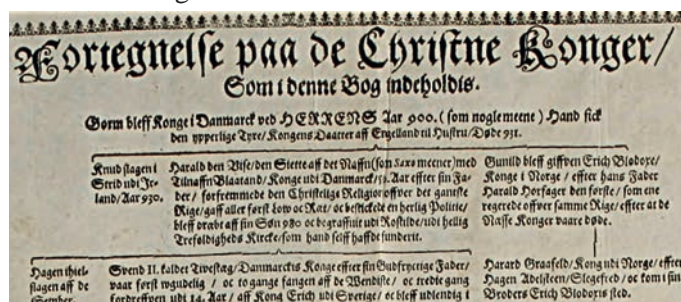 Fortegnelse paa de Christne Konger/
Som i denne Bog indeholdis.
Gorm bleff Konge i Danmarck ved HERRENS Aar 900. (som nogle meene) Hand fick
den ypperlige Tyre/ Kongens Daatter aff Engelland til Hustru/ Døde 931.
Knud slagen i
Strid udi Ir-
land/ Aar 930.
Harald den Vise/ den Siette aff det Naffn (som Saxo meener) med
Tilnaffn Blaatand/ Konge udi Danmarck/ 51. Aar effter sin Fa-
der/ forfremmede den Christelige Religion offver det gantste
Rige/ gaff aller først Low oc Ræt/ oc bestickede en herlig Politie/
bleff dræbt aff sin Søn 980 oc begraffuit udi Roskilde/ udi hellig
Trefoldigheds Kircke/ som hand self haffde funderit.
Gunild bleff giffven Erich Blodoxe/
Konge i Norge / effter hans Fader
Harald Horfager den første/ som ene
regerede offver samme Rige/ effter at de
Nasse Konger vaare døde.
Hagen ihiel-
slagen aff de
Svend II. kaldet Tivestæg/ Danmarckis Konge effter sin Gudfryctige Fader/
vaar først wgudelig / oc to gange fangen aff de Wendiste/ oc tredie gang
fordreffven udi 14. Aar/ aff Kong Erich udi Sverige/ oc bleff
Harard Graafeld/ Kong udi Norge/ effter
Hagen Adelsteen/ Slegefred/ oc kom i sin
Broders Erich Blodoxis sted.